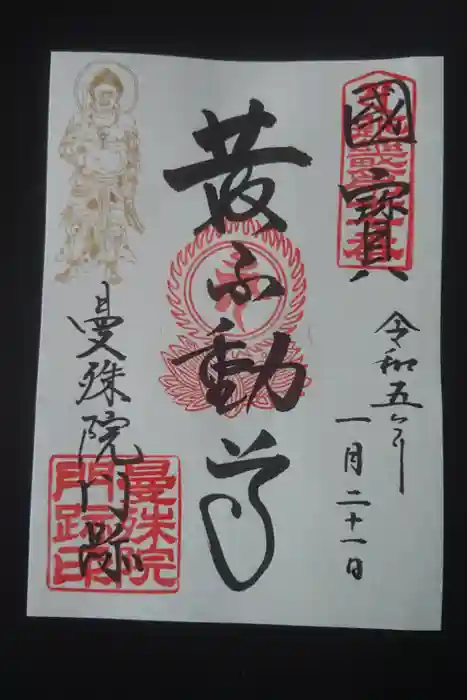 國寳
令和五年
一月二十一日
黄不動尊
曼殊院門跡
曼殊院
門跡印